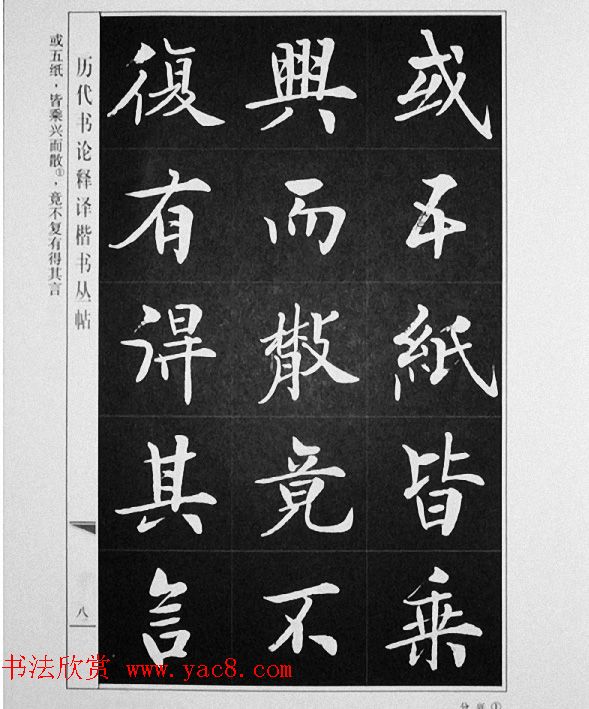 或五紙皆乗
興而散竟不
復有得其言
历代书论释译楷书丛帖
八
或五纸，皆乘兴而散①，竟不复有得其言
书法欣赏 www.yac8.com
①